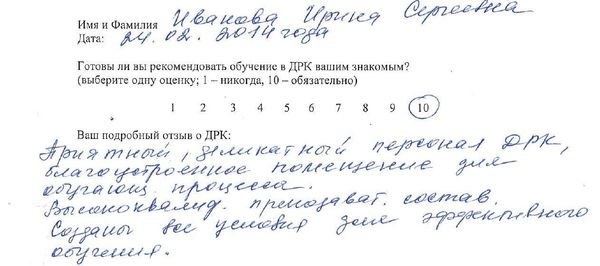 Имя и Фамилия Иванова Ирина Сергеевна
Дата: 24.02.2014 года
Готовы ли вы рекомендовать обучение в ДРК вашим знакомым?
(выберите одну оценку; 1 – никогда, 10 – обязательно)
1 2 3 4 5 6 7 8 9 10
Ваш подробный отзыв о ДРК:
Приятный, деликатный персонал ДРК,
благоустроенное помещение для
обучающ. процесса.
Высококвалиф. преподават. состав.
Созданы все условия для эффективного
обучения.